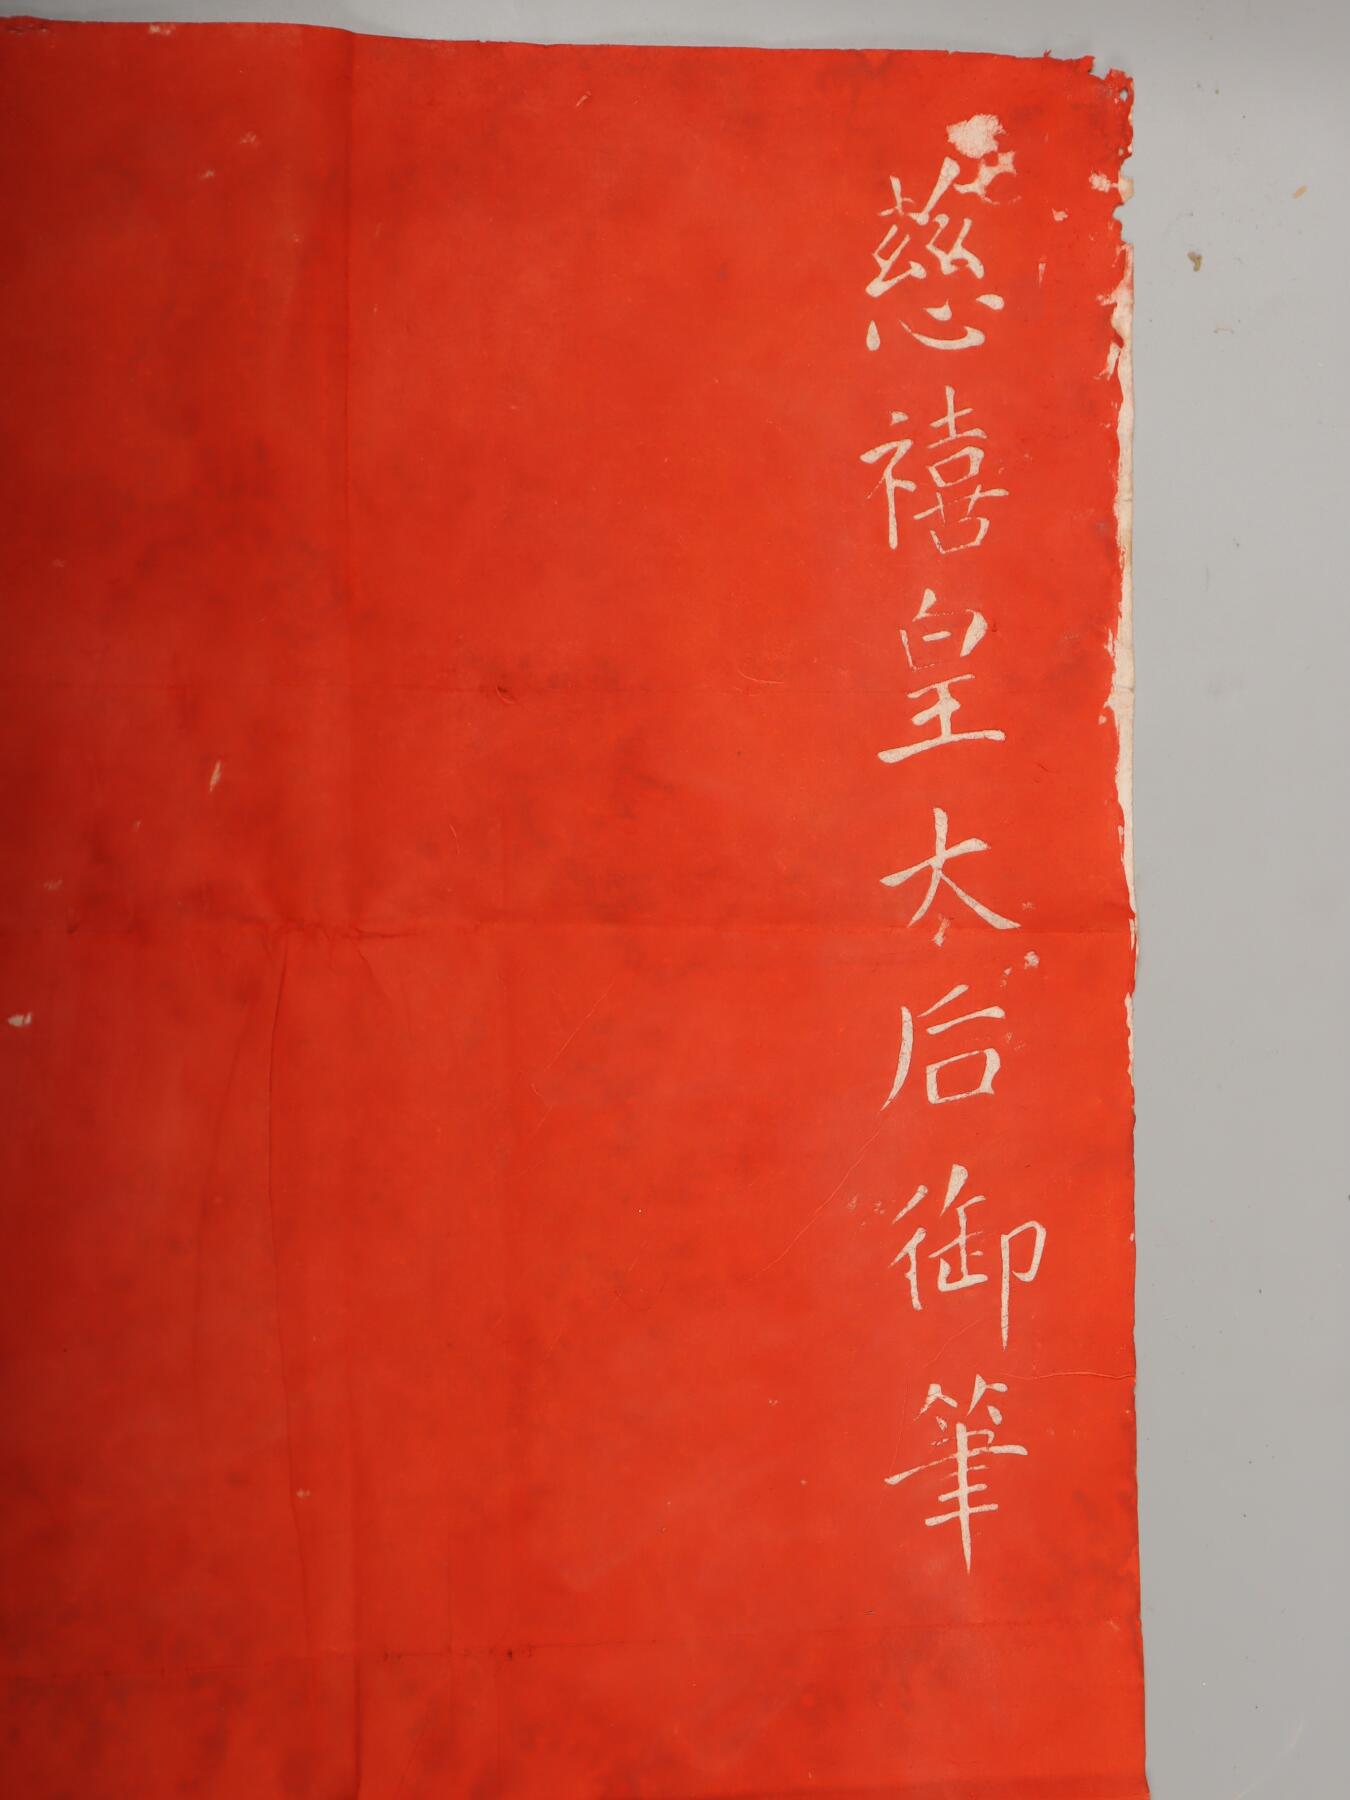 慈禧皇太后御筆